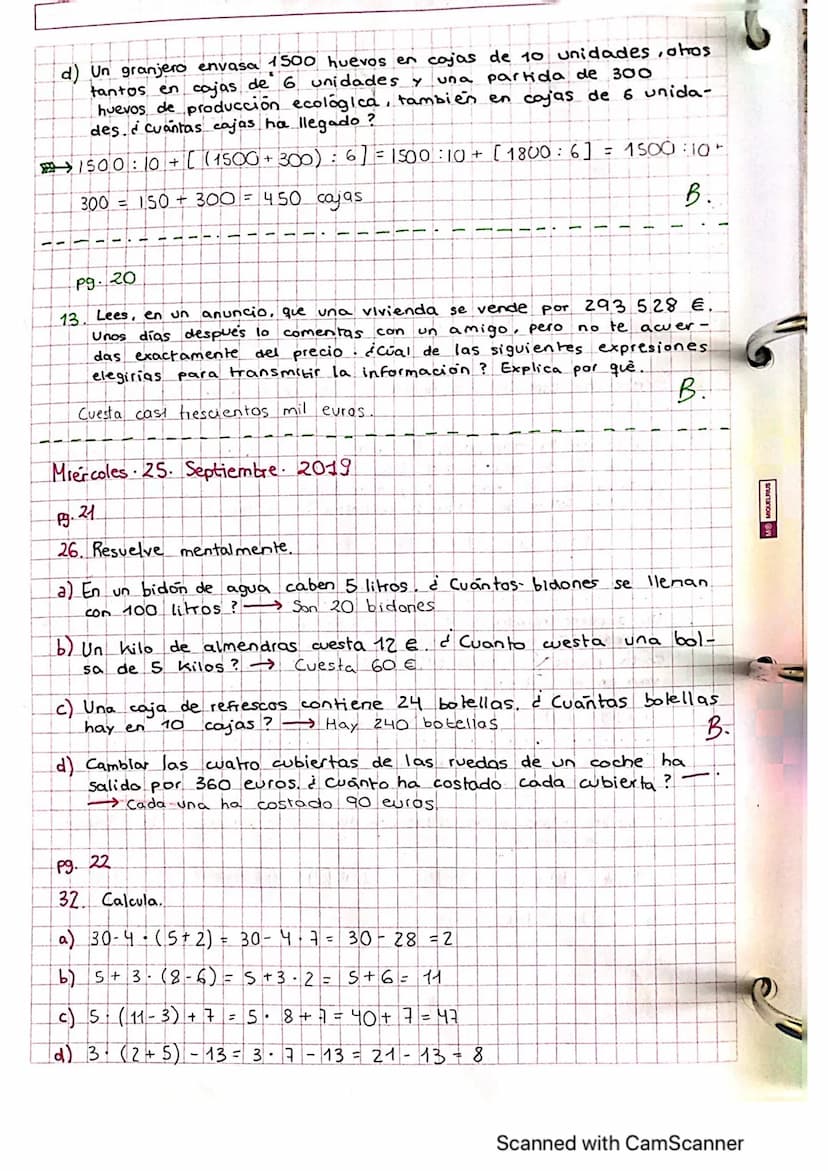 d) Un granjero envasa 1500 huevos en cajas de 10 unidades, otros
tantos en cajas de 6 unidades y una partida de 300
huevos de producción ecológica, también en cajas de 6 unida-
des. ¿Cuántas cajas ha llegado?
→ 1500 : 10 + [(1500 + 300) : 6] = 1500 : 10 + [1800 : 6] = 1500 : 10 +
300 = 150 + 300 = 450 cajas
B.
pg. 20
13. Lees, en un anuncio, que una vivienda se vende por 293 528 €.
Unos días después lo comentas con un amigo, pero no te acuer-
das exactamente del precio. ¿Cúal de las siguientes expresiones
elegirías para transmitir la información? Explica por qué.
B.
Cuesta casi trescientos mil euros.
Miércoles · 25 · Septiembre · 2019
pg. 21
26. Resuelve mentalmente.
a) En un bidón de agua caben 5 litros. ¿Cuántos bidones se llenan
con 100 litros? → Son 20 bidones
b) Un kilo de almendras cuesta 12 €. ¿Cuanto cuesta una bol-
sa de 5 kilos? → Cuesta 60 €
c) Una caja de refrescos contiene 24 botellas. ¿Cuántas botellas
hay en 10 cajas? → Hay 240 botellas
B.
d) Cambiar las cuatro cubiertas de las ruedas de un coche ha
salido por 360 euros. ¿Cuánto ha costado cada cubierta? —.
→ Cada una ha costado 90 euros.
pg. 22
32. Calcula.
a) 30 - 4 · (5 + 2) = 30 - 4 · 7 = 30 - 28 = 2
b) 5 + 3 · (8 - 6) = 5 + 3 · 2 = 5 + 6 = 11
c) 5 · (11 - 3) + 7 = 5 · 8 + 7 = 40 + 7 = 47
d) 3 · (2 + 5) - 13 = 3 · 7 - 13 = 21 - 13 = 8
MIQUELRIUS
Scanned with CamScanner